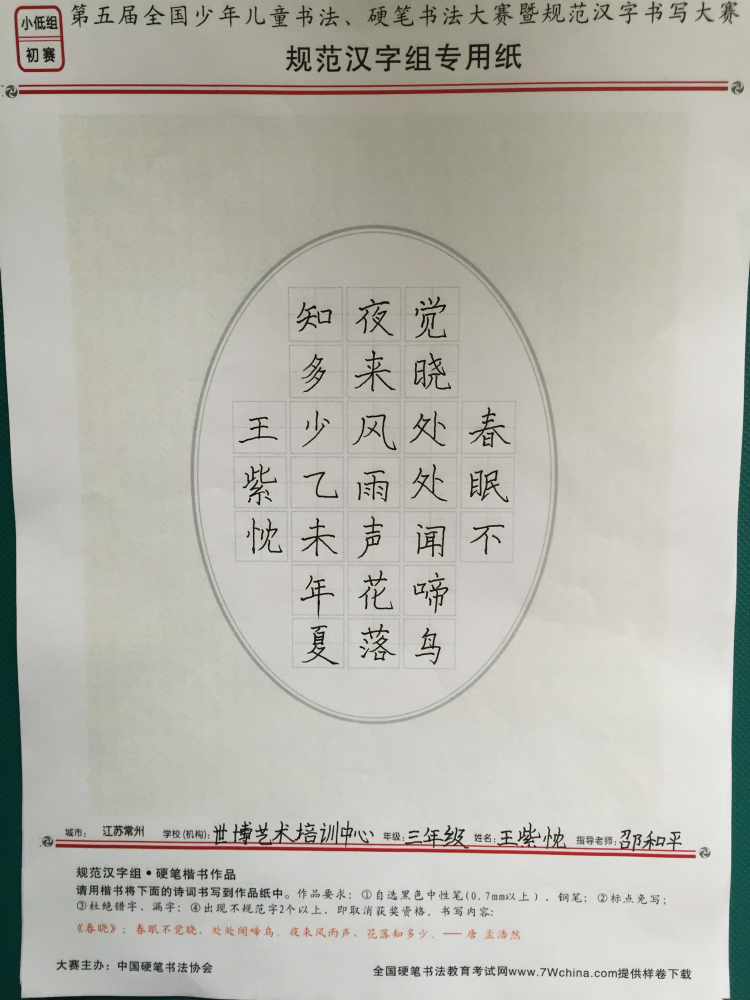 小低组
初赛
第五届全国少年儿童书法、硬笔书法大赛暨规范汉字书写大赛
规范汉字组专用纸
春眠不
觉晓处处闻啼鸟
夜来风雨声花落
知多少乙未年夏
王紫忱
城市: 江苏常州 学校(机构): 世博艺术培训中心 年级: 三年级 姓名: 王紫忱 指导老师: 邵和平
规范汉字组●硬笔楷书作品
请用楷书将下面的诗词书写到作品纸中。作品要求: ①自选黑色中性笔(0.7mm以上)、钢笔; ②标点免写;
③杜绝错字、漏字; ④出现不规范字2个以上, 即取消获奖资格、书写内容:
《春晓》: 春眠不觉晓, 处处闻啼鸟. 夜来风雨声, 花落知多少. ——唐 孟浩然
大赛主办: 中国硬笔书法协会 全国硬笔书法教育考试网www.7Wchina.com提供样卷下载